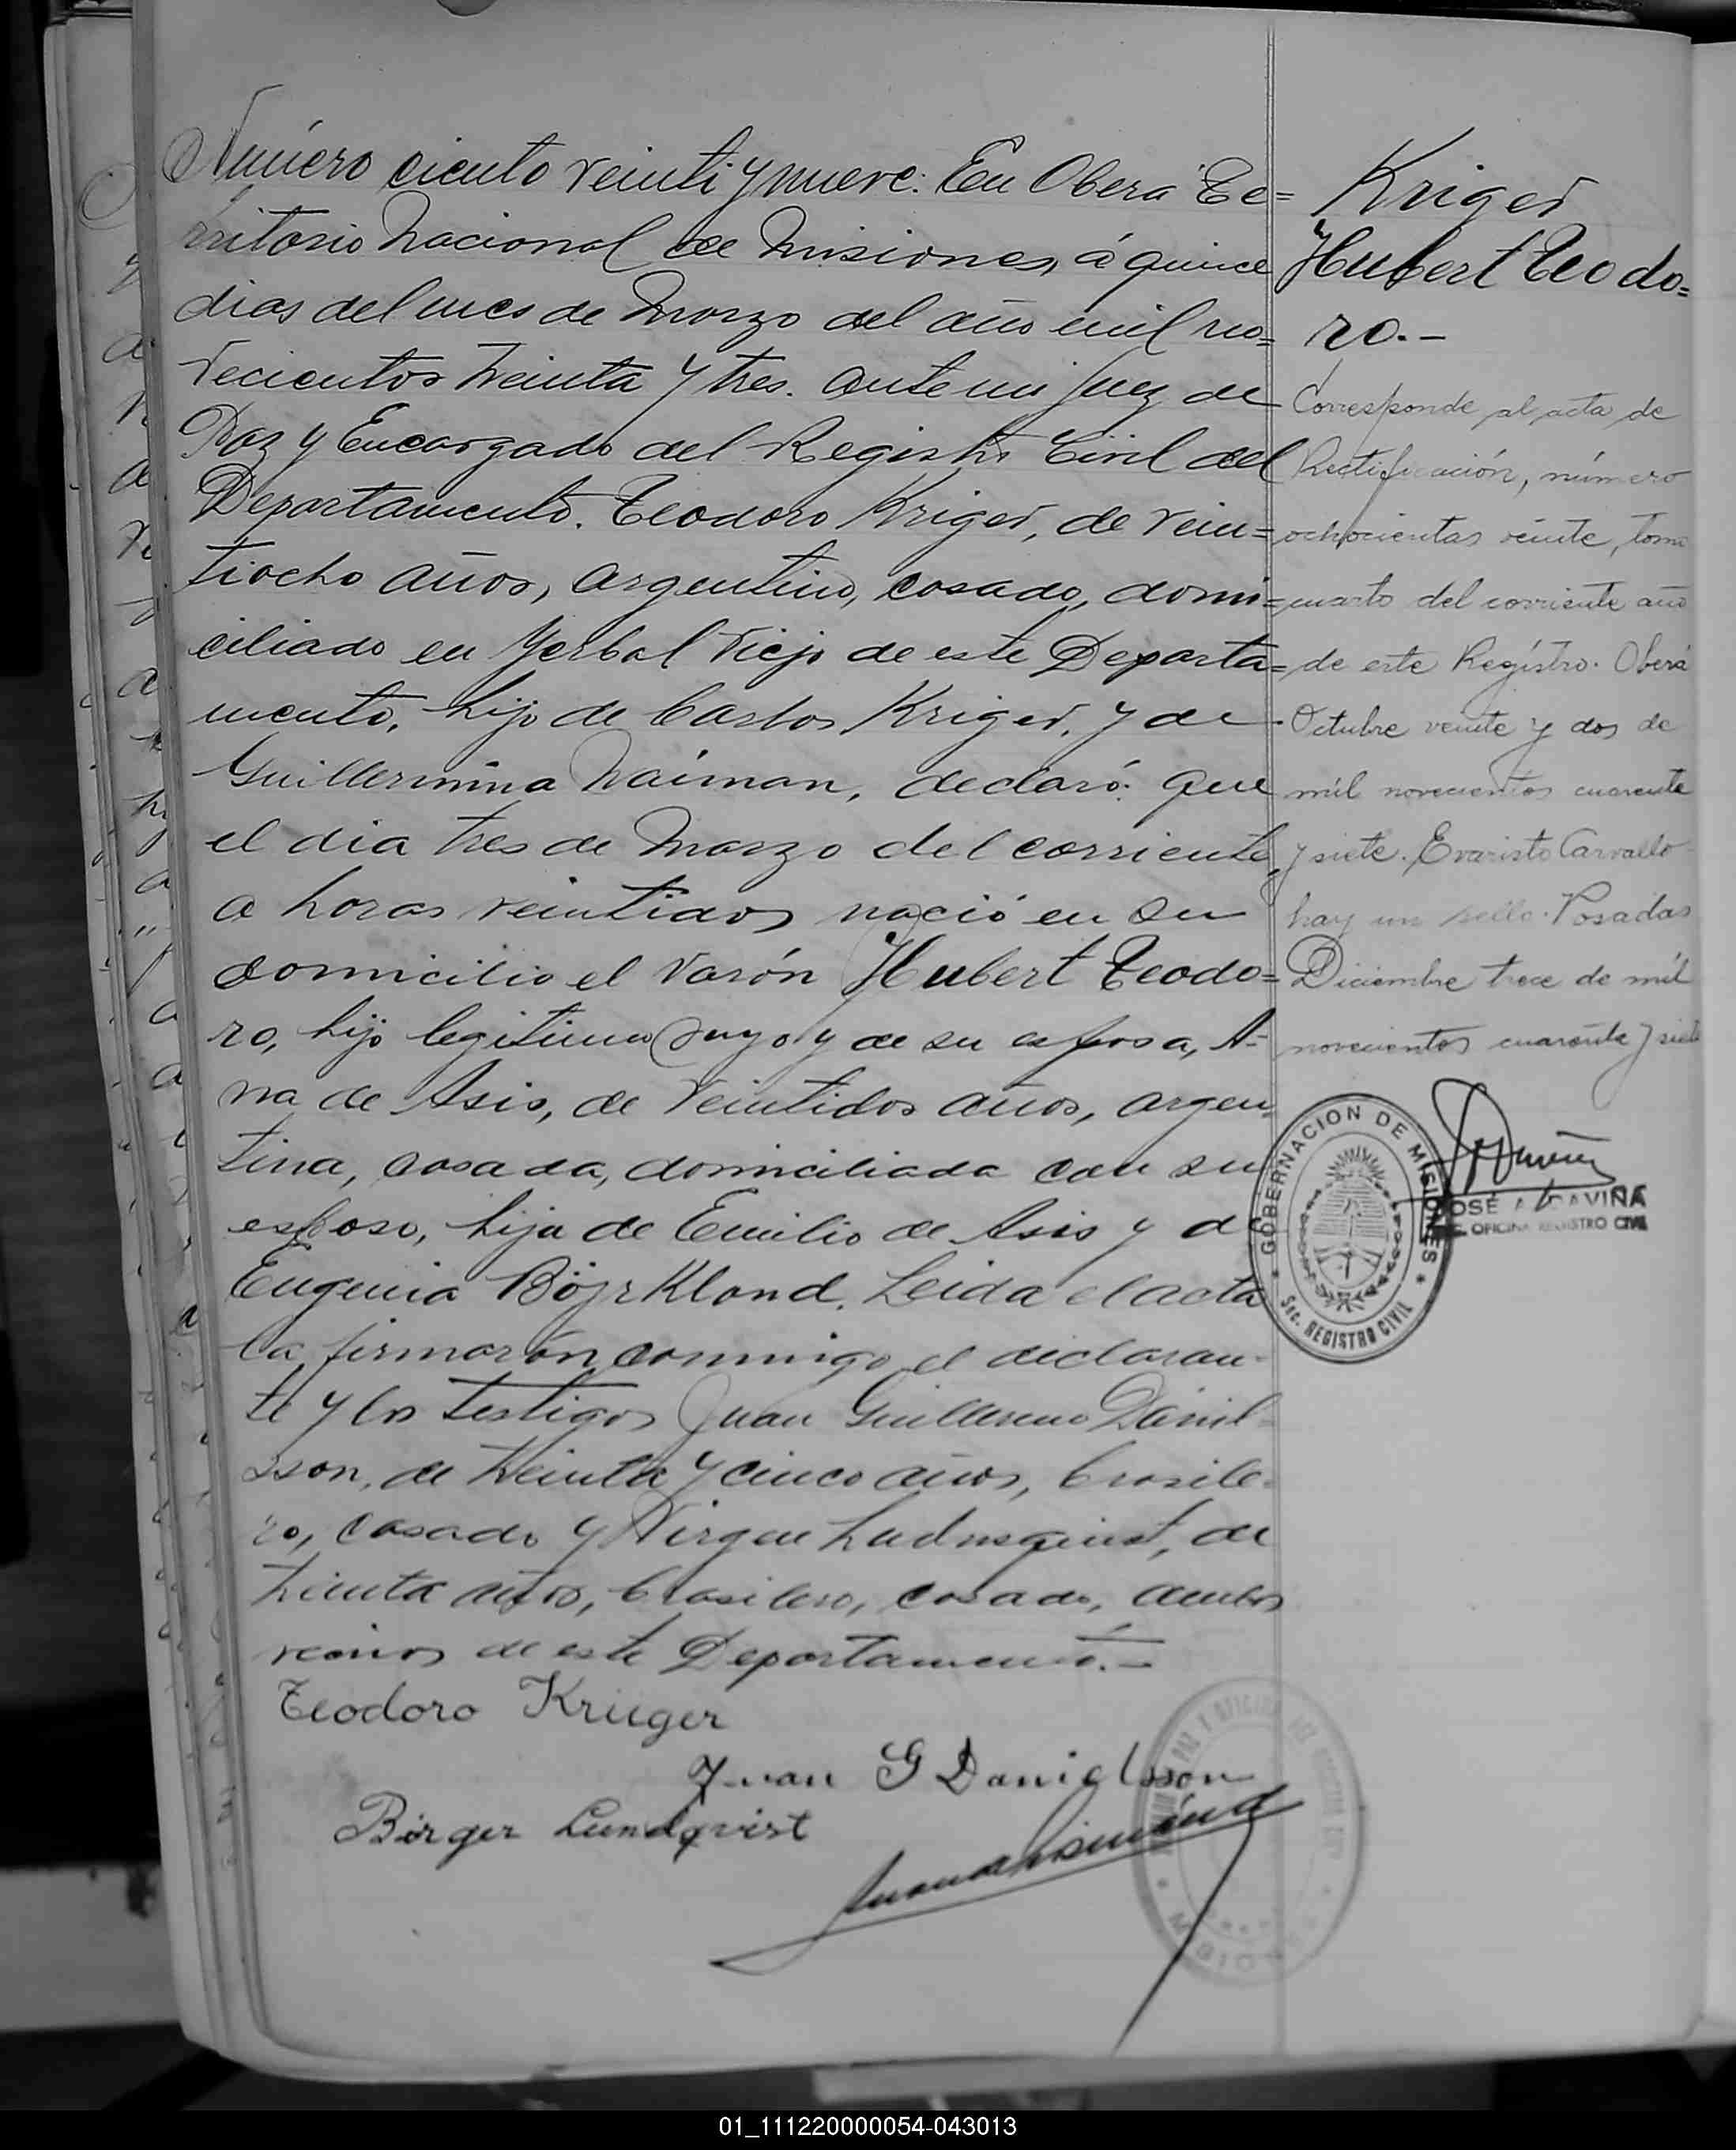 Número ciento veinti y nueve: En Oberá Te=
rritorio Nacional de Misiones, á quince
dias del mes de Marzo del año mil no=
vecientos treinta y tres. ante mi Juez de
Paz y Encargado del Registro Civil del
Departamento. Teodoro Kriger, de vein=
tiocho años, argentino, casado, domi=
ciliado en Yerbal Viejo de este Departa=
mento, hijo de Carlos Kriger, y de
Guillermina Naiman, declaró: que
el dia tres de Marzo del corriente,
a horas veintidos nació en su
domicilio el varón Hubert Teodo=
ro, hijo legitimo suyo y de su esposa, A=
na de Asis, de veintidos años, argen
tina, casada, domiciliada con su
esposo, hija de Emilio de Asis y de
Eugenia Böjrkland. Leida el acta
la firmarón conmigo el declaran=
te y los testigos Juan Guillermo Daniel=
sson, de treinta y cinco años, brasile=
ro, casado y Virgen de
treinta años, brasilero, casado, ambos
vecinos de este Departamento.—
Teodoro Krieger
Juan G Danielsson
Birger Lundqvist
Kriger
Hubert Teodo=
ro.—
Corresponde al acta de
Rectificación, número
ochocientas veinte, tomo
cuarto del corriente año
de este Registro. Oberá
Octubre veinte y dos de
mil novecientos cuarenta
y siete. Evaristo Carvallo
hay un sello. Posadas
Diciembre trece de mil
novecientos cuarenta y siete
GOBERNACION DE MISIONES
Sec. REGISTRO CIVIL
JOSÉ A.
OFICINA REGISTRO CIVIL
01_111220000054-043013